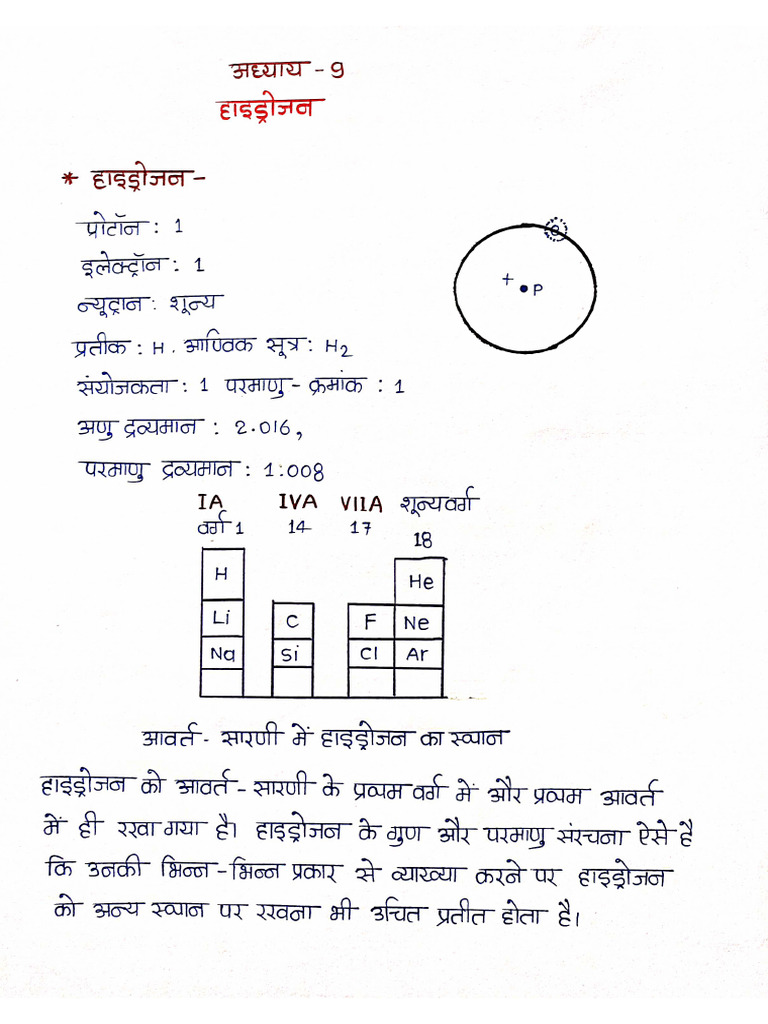 अध्याय - 9
हाइड्रोजन
* हाइड्रोजन -
प्रोटॉन : 1
इलेक्ट्रॉन : 1
न्यूट्रान : शून्य
प्रतीक : H . आण्विक सूत्र : H2
संयोजकता : 1 परमाणु - क्रमांक : 1
अणु द्रव्यमान : 2.016,
परमाणु द्रव्यमान : 1:008
e
+ P
IA IVA VIIA शून्यवर्ग
वर्ग 1 14 17 18
H He
Li C F Ne
Na Si Cl Ar
आवर्त - सारणी में हाइड्रोजन का स्थान
हाइड्रोजन को आवर्त - सारणी के प्रथम वर्ग में और प्रथम आवर्त
में ही रखा गया है। हाइड्रोजन के गुण और परमाणु संरचना ऐसे है
कि उनकी भिन्न - भिन्न प्रकार से व्याख्या करने पर हाइड्रोजन
को अन्य स्थान पर रखना भी उचित प्रतीत होता है।